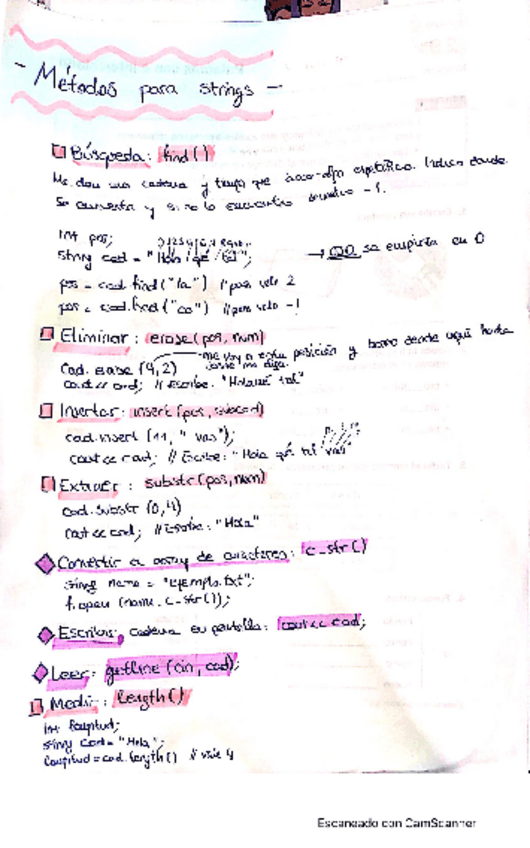 - Métodos para strings -
Búsqueda: find()
Me dan una cadena y tengo que buscar algo específico. Indica donde
se encuentra y si no lo encuentra devuelve -1.
int pos;
string cad = "Hola qué tal";
→ OJO se empieza en 0
pos = cad.find("la") // pos vale 2
pos = cad.find("ca") // pos vale -1
Eliminar: erase(pos, num)
me voy a esta posición y borro desde aquí hasta
Cad.erase (4,2)
donde me diga.
cout << cad; // Escribe: "Holaué tal"
Insertar: insert (pos, subcad)
cad.insert (11, " vas");
cout << cad; // Escribe: "Hola qué tal vas"
Extraer: substr(pos, num)
cad.substr (0,4)
cout << cad; // Escribe: "Hola"
Convertir a array de caracteres: c_str()
string name = "ejemplo.txt";
f.open (name.c_str());
Escribir cadena en pantalla: cout << cad;
Leer: getline (cin, cad);
Medir: length()
int longitud;
string cad = "Hola";
longitud = cad.length() // vale 4
Escaneado con CamScanner